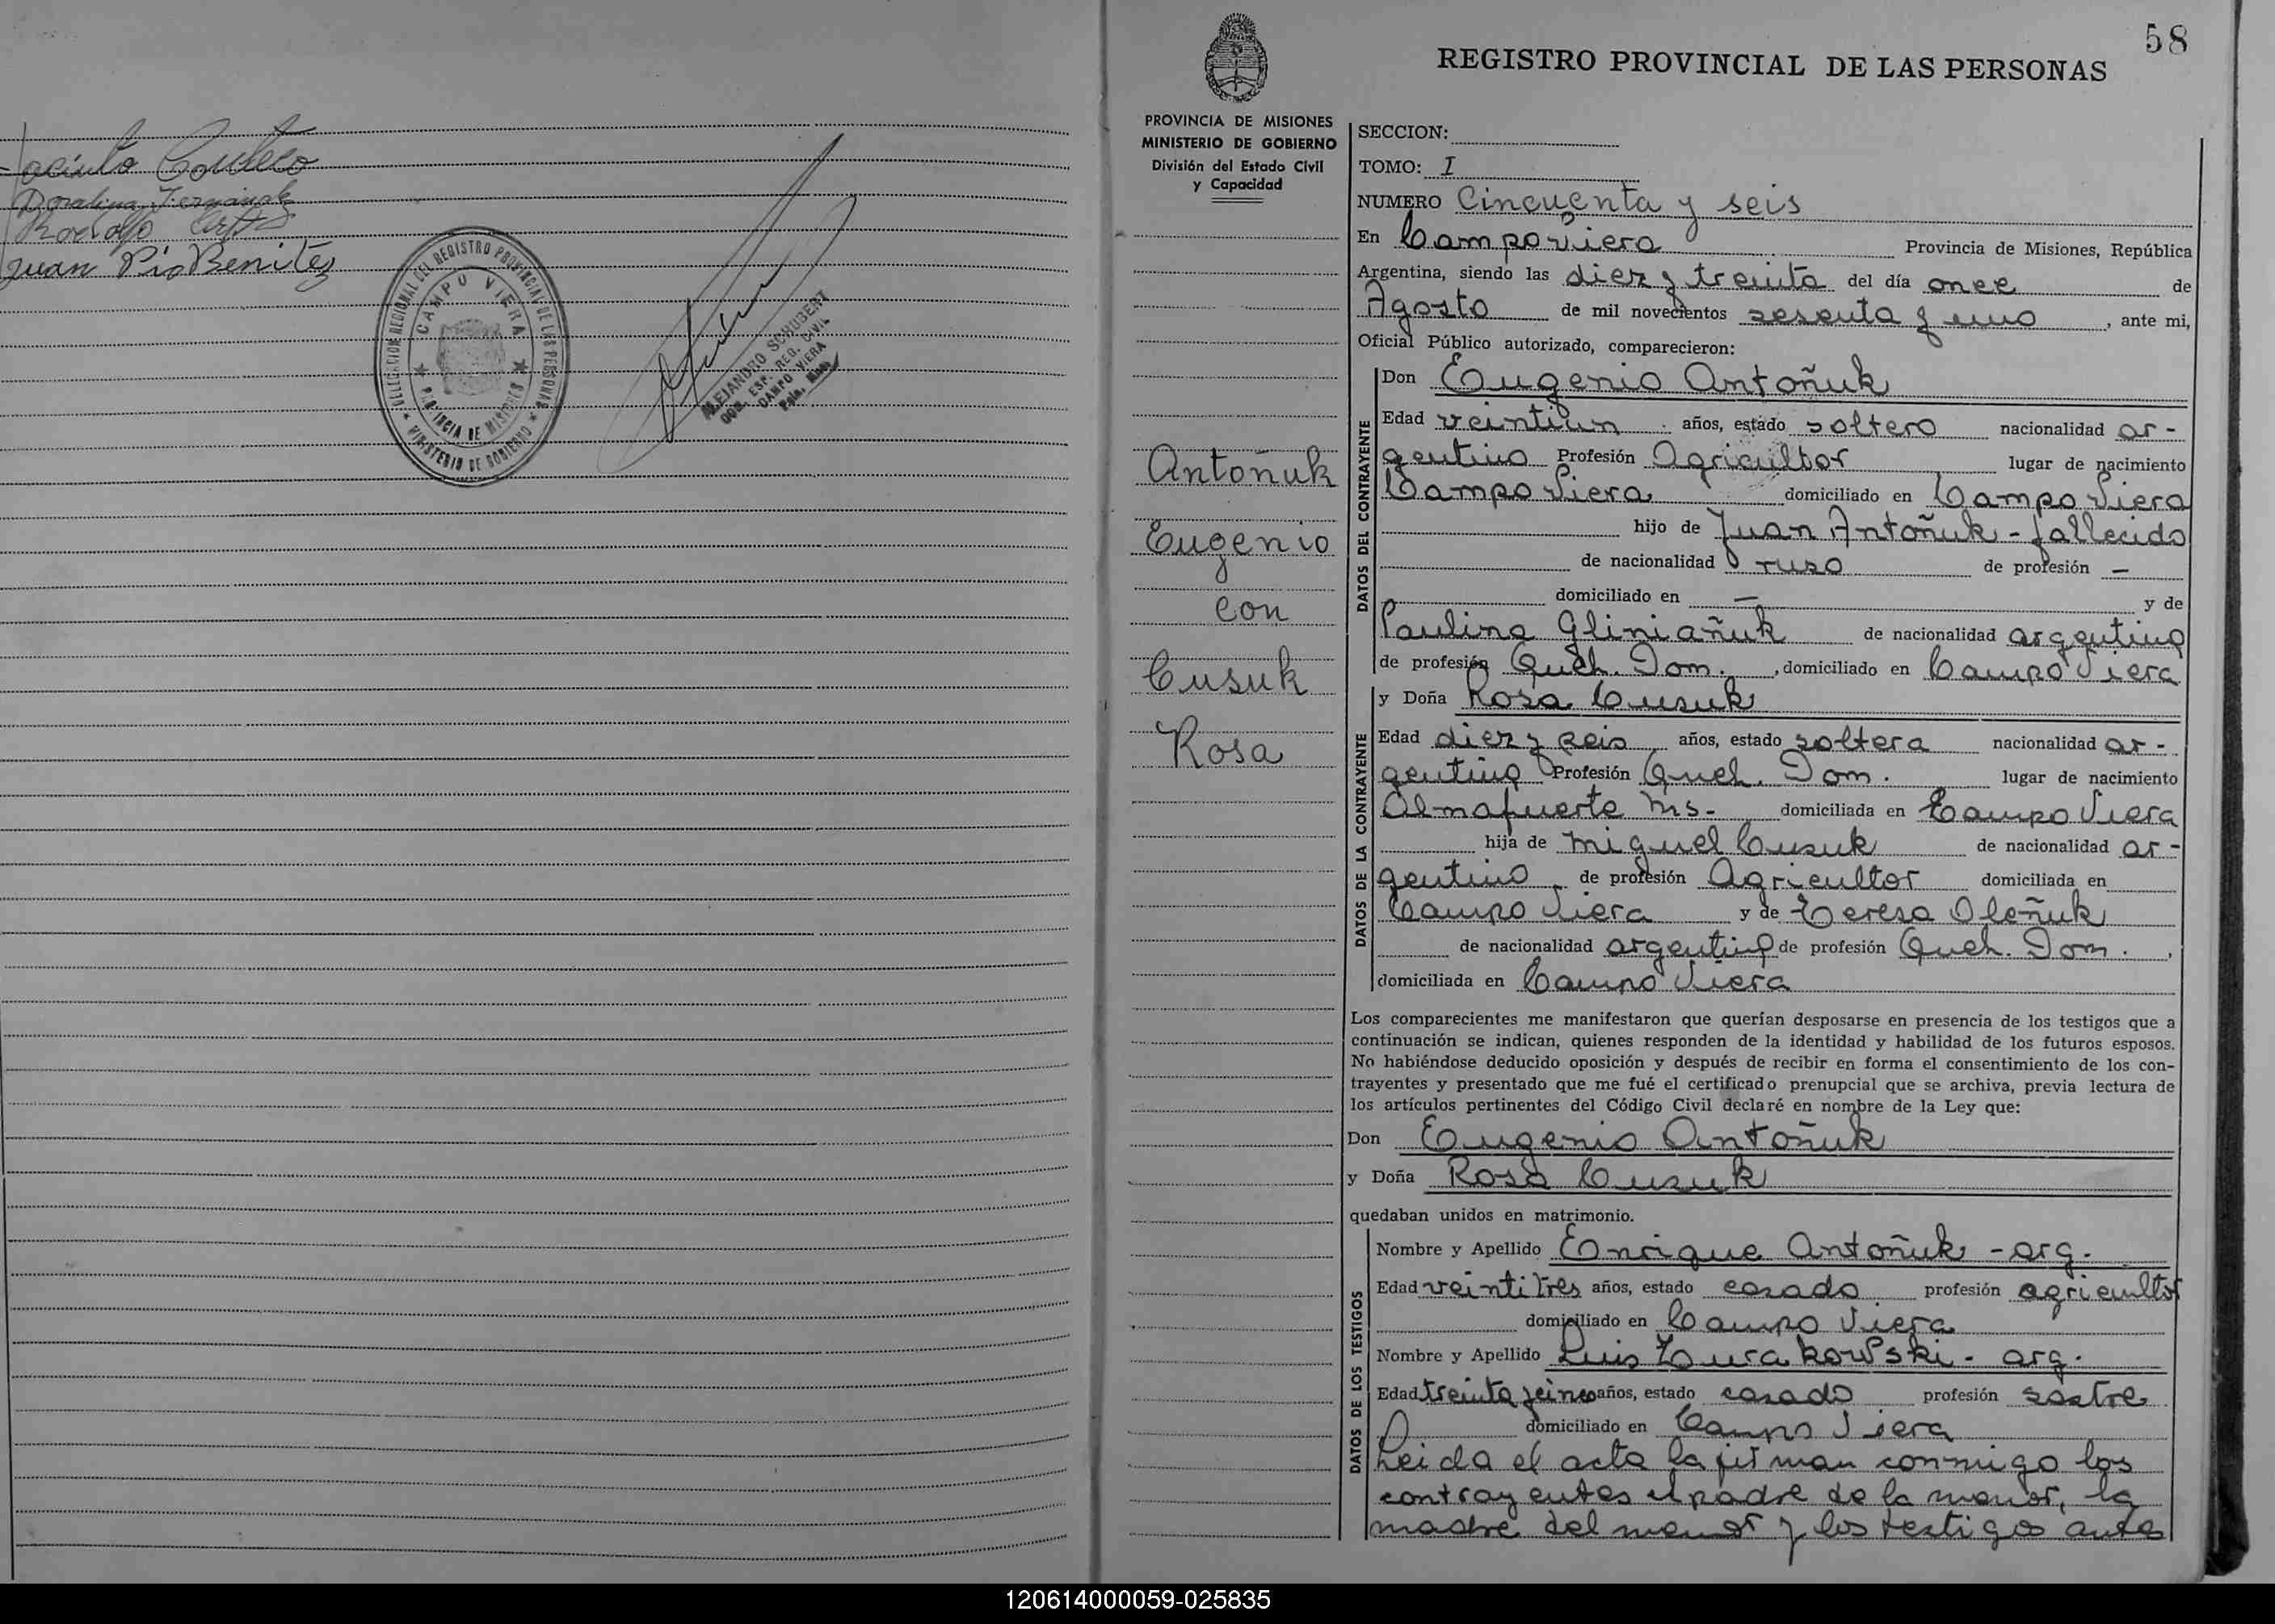 Jacinto Couteco
Doralina Fernández
Rodolfo
Juan Pío Benitez
DELEGACION REGIONAL DEL REGISTRO PROVINCIAL DE LAS PERSONAS
CAMPO VIERA
PROVINCIA DE MISIONES
MINISTERIO DE GOBIERNO
ALEJANDRO SCHUBERT
ESP. REG. CIVIL
CAMPO VIERA
58
REGISTRO PROVINCIAL DE LAS PERSONAS
PROVINCIA DE MISIONES
MINISTERIO DE GOBIERNO
División del Estado Civil
y Capacidad
Antoñuk
Eugenio
con
Cusuk
Rosa
SECCION:
TOMO: I
NUMERO Cincuenta y seis
En Campo Viera Provincia de Misiones, República
Argentina, siendo las diez y treinta del día once de
Agosto de mil novecientos sesenta y uno, ante mi,
Oficial Público autorizado, comparecieron:
DATOS DEL CONTRAYENTE
Don Eugenio Antoñuk
Edad veintiun años, estado soltero nacionalidad ar-
gentino Profesión Agricultor lugar de nacimiento
Campo Viera domiciliado en Campo Viera
hijo de Juan Antoñuk - fallecido
de nacionalidad ruso de profesión —
domiciliado en — y de
Paulina Gliniañuk de nacionalidad argentina
de profesión Queh. Dom., domiciliado en Campo Viera
y Doña Rosa Cusuk
DATOS DE LA CONTRAYENTE
Edad diez y seis años, estado soltera nacionalidad ar-
gentina Profesión Queh. Dom. lugar de nacimiento
Almafuerte Ms- domiciliada en Campo Viera
hija de Miguel Cusuk de nacionalidad ar-
gentino de profesión Agricultor domiciliada en
Campo Viera y de Teresa Oleñuk
de nacionalidad argentina de profesión Queh. Dom.,
domiciliada en Campo Viera
Los comparecientes me manifestaron que querían desposarse en presencia de los testigos que a
continuación se indican, quienes responden de la identidad y habilidad de los futuros esposos.
No habiéndose deducido oposición y después de recibir en forma el consentimiento de los con-
trayentes y presentado que me fué el certificado prenupcial que se archiva, previa lectura de
los artículos pertinentes del Código Civil declaré en nombre de la Ley que:
Don Eugenio Antoñuk
y Doña Rosa Cusuk
quedaban unidos en matrimonio.
DATOS DE LOS TESTIGOS
Nombre y Apellido Enrique Antoñuk - arg.
Edad veintitres años, estado casado profesión agricultor
domiciliado en Campo Viera
Nombre y Apellido Luis Zurakowski - arg.
Edad treinta y cinco años, estado casado profesión sastre
domiciliado en Campo Viera
Leida el acta la firman conmigo los
contrayentes el padre de la menor, la
madre del menor y los testigos antes
120614000059-025835